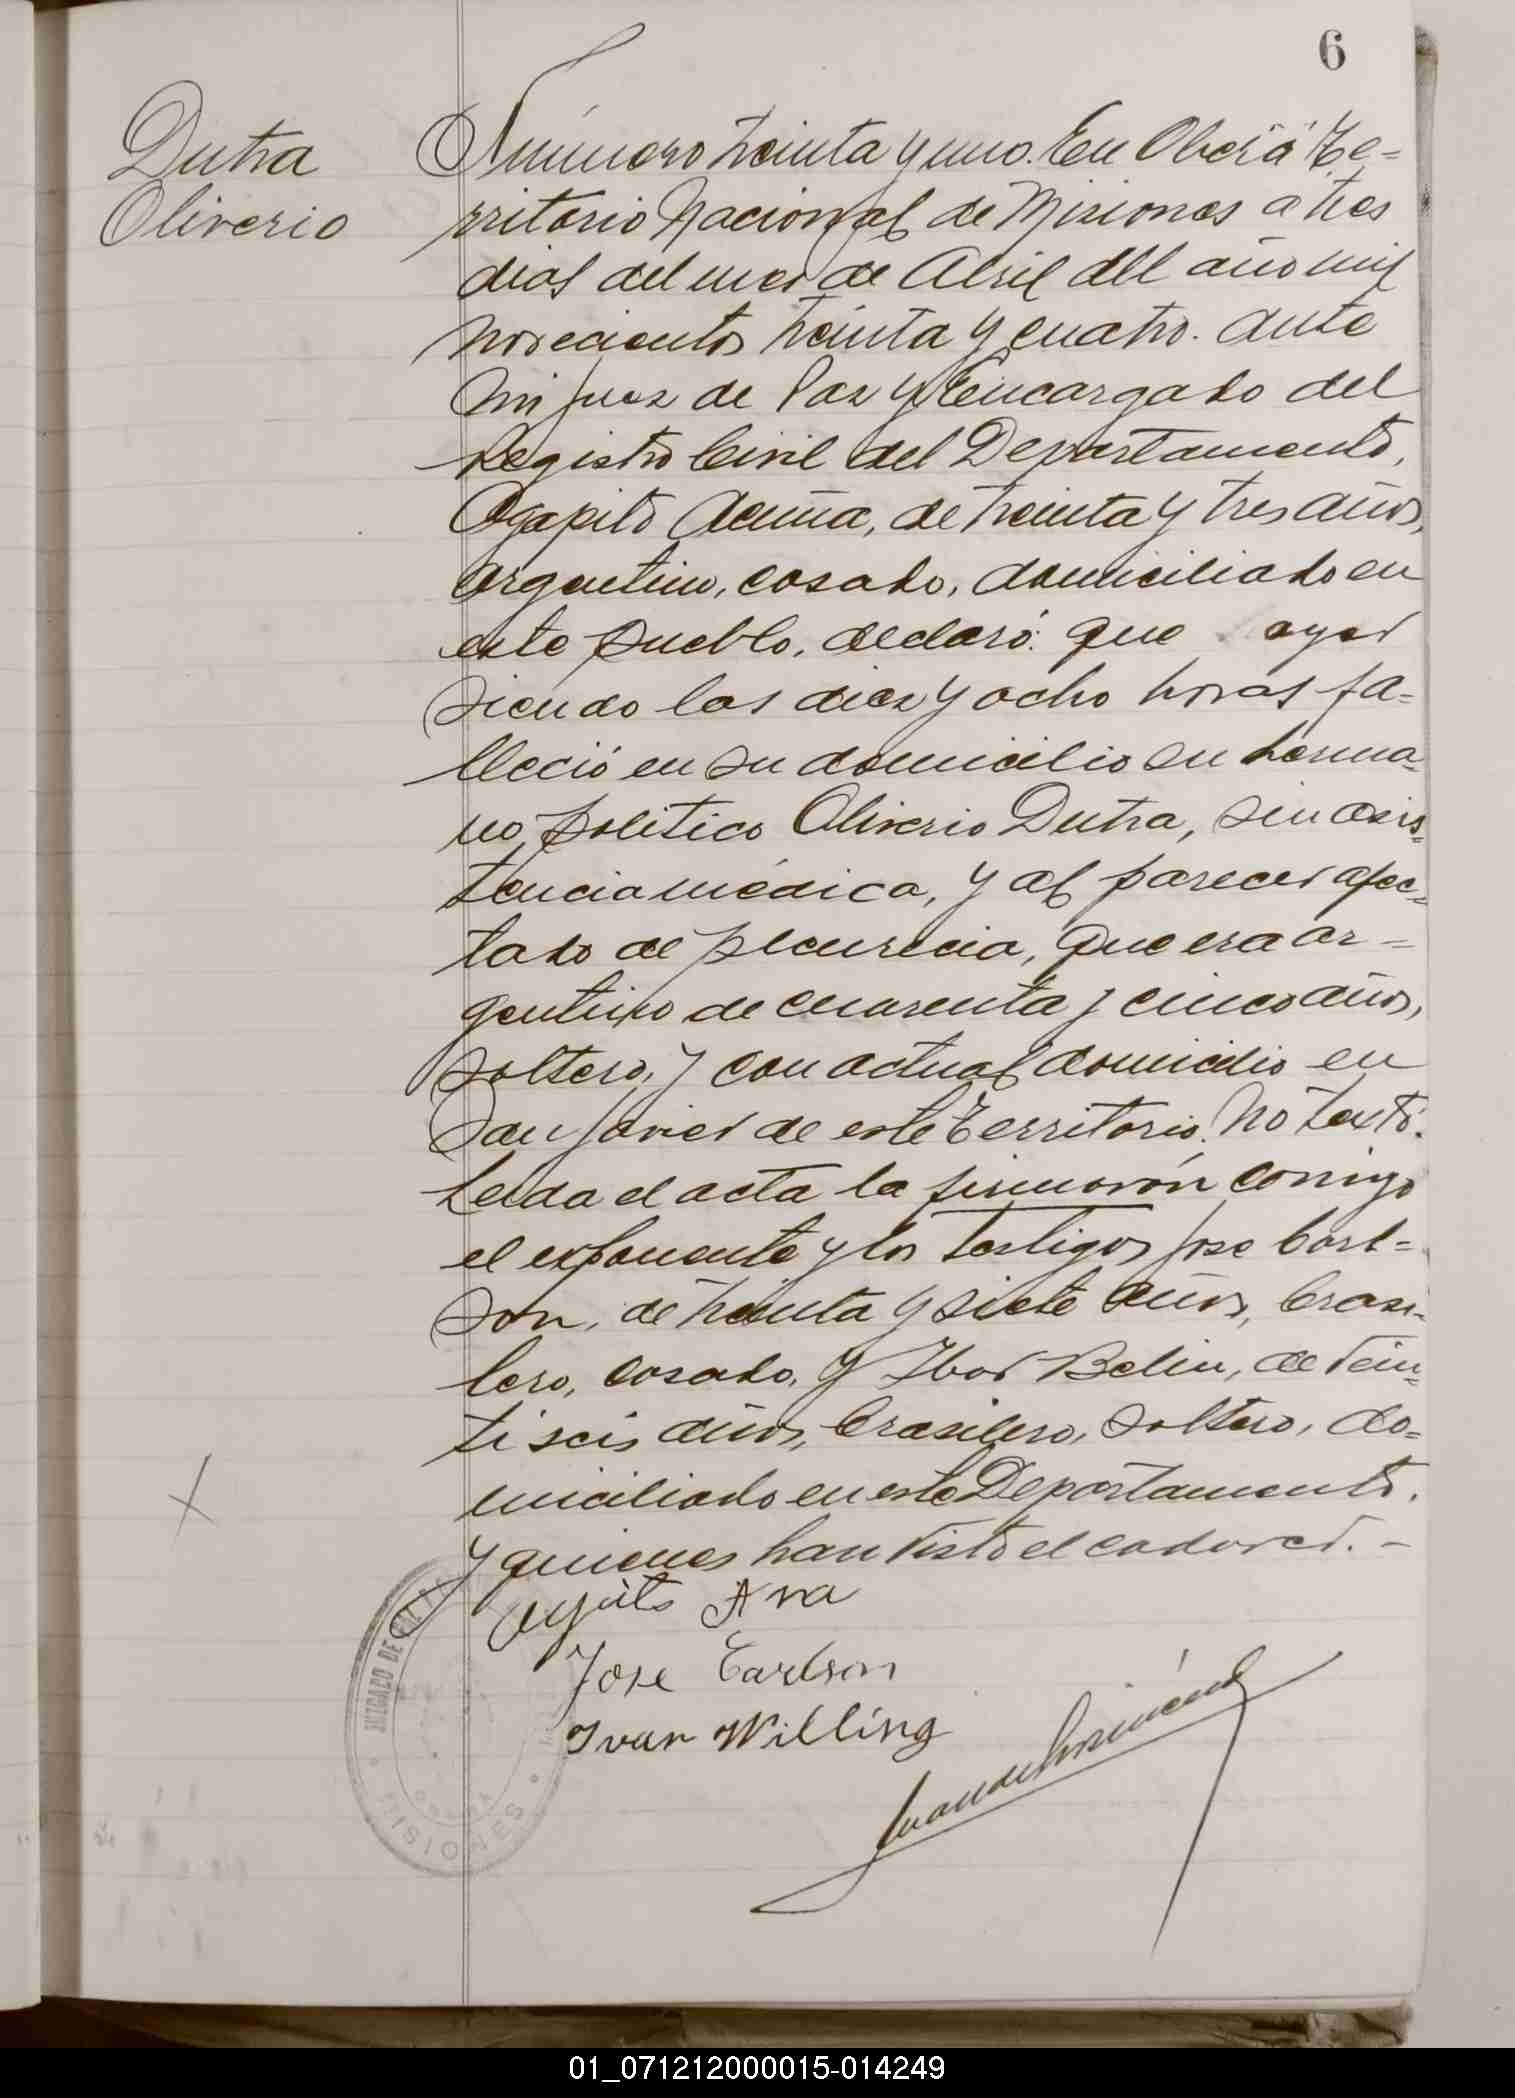 6
Dutra
Oliverio
Número treinta y uno. En Oberá Te-
rritorio Nacional de Misiones a tres
dias del mes de Abril del año mil
novecientos treinta y cuatro. Ante
mi Juez de Paz y Encargado del
Registro Civil del Departamento,
Agapito Acuña, de treinta y tres años,
argentino, casado, domiciliado en
este pueblo, declaró: que ayer
siendo las diez y ocho horas fa-
lleció en su domicilio su herma-
no politico Oliverio Dutra, sin asis-
tencia médica, y al parecer afec-
tado de pleuresia, que era ar-
gentino de cuarenta y cinco años,
soltero, y con actual domicilio en
San Javier de este Territorio. No testó.
Leida el acta la firmaron conmigo
el exponente y los testigos Jose Carl-
son, de treinta y siete años, brasi-
lero, casado, y Belin, de vein-
tiseis años, brasilero, soltero, do-
miciliado en este Departamento.
y quienes han visto el cadaver. -
Jose Carlson
Ivan Willing
JUZGADO DE PAZ
OBERA
MISIONES
01_071212000015-014249